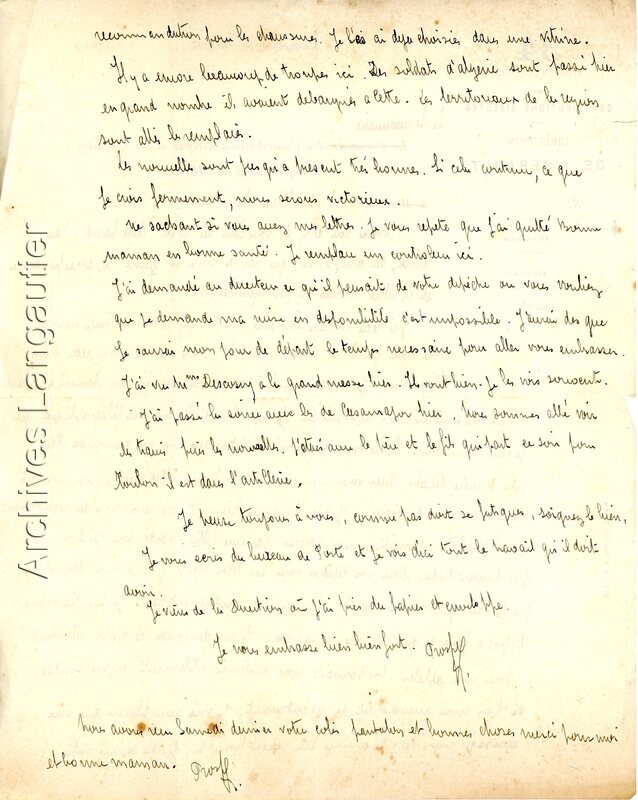 recommandation pour les chaussures. Je les ai deja choisies dans une vitrine.
Il y a encore beaucoup de troupes ici. Des soldats d'algerie sont passé hier
en grand nombre il avaient debarqués a Cette. Les territoriaux de la region
sont allés les remplacés.
Les nouvelles sont jusqu'a present très bonnes. Si cela continu, ce que
Je crois fermement, nous serons victorieux.
Ne sachant si vous avez mes lettres. Je vous repete que j'ai quitté Bonne
maman en bonne santé. Je remplace un controleur ici.
J'ai demandé au directeur ce qu'il pensait de votre dépêche ou vous vouliez
que je demande ma mise en disponibilité c'est impossible. J'aurai des que
Je saurai mon jour de départ le temps necessaire pour aller vous embrasser.
J'ai vu Mme Descossy a la grand messe hier. Ils vont bien. Je les vois souvent.
J'ai passé la soirée avec les de Casamajor hier. Nous sommes allé voir
les trains puis les nouvelles. J'étais avec le père et le fils qui part ce soir pour
Toulon il est dans l'artillerie.
Je pense toujours à vous, comme papa doit se fatiguer, soignez le bien,
Je vous ecris du bureau de Poste et Je vois d'ici tout le travail qu'il doit
avoir.
Je viens de la Direction où j'ai pris du papier et enveloppe.
Je vous embrasse biens bien fort.
Nous avons reçu Samedi dernier votre colis pantalons et bonnes choses merci pour moi
et bonne maman.
Archives Langautier